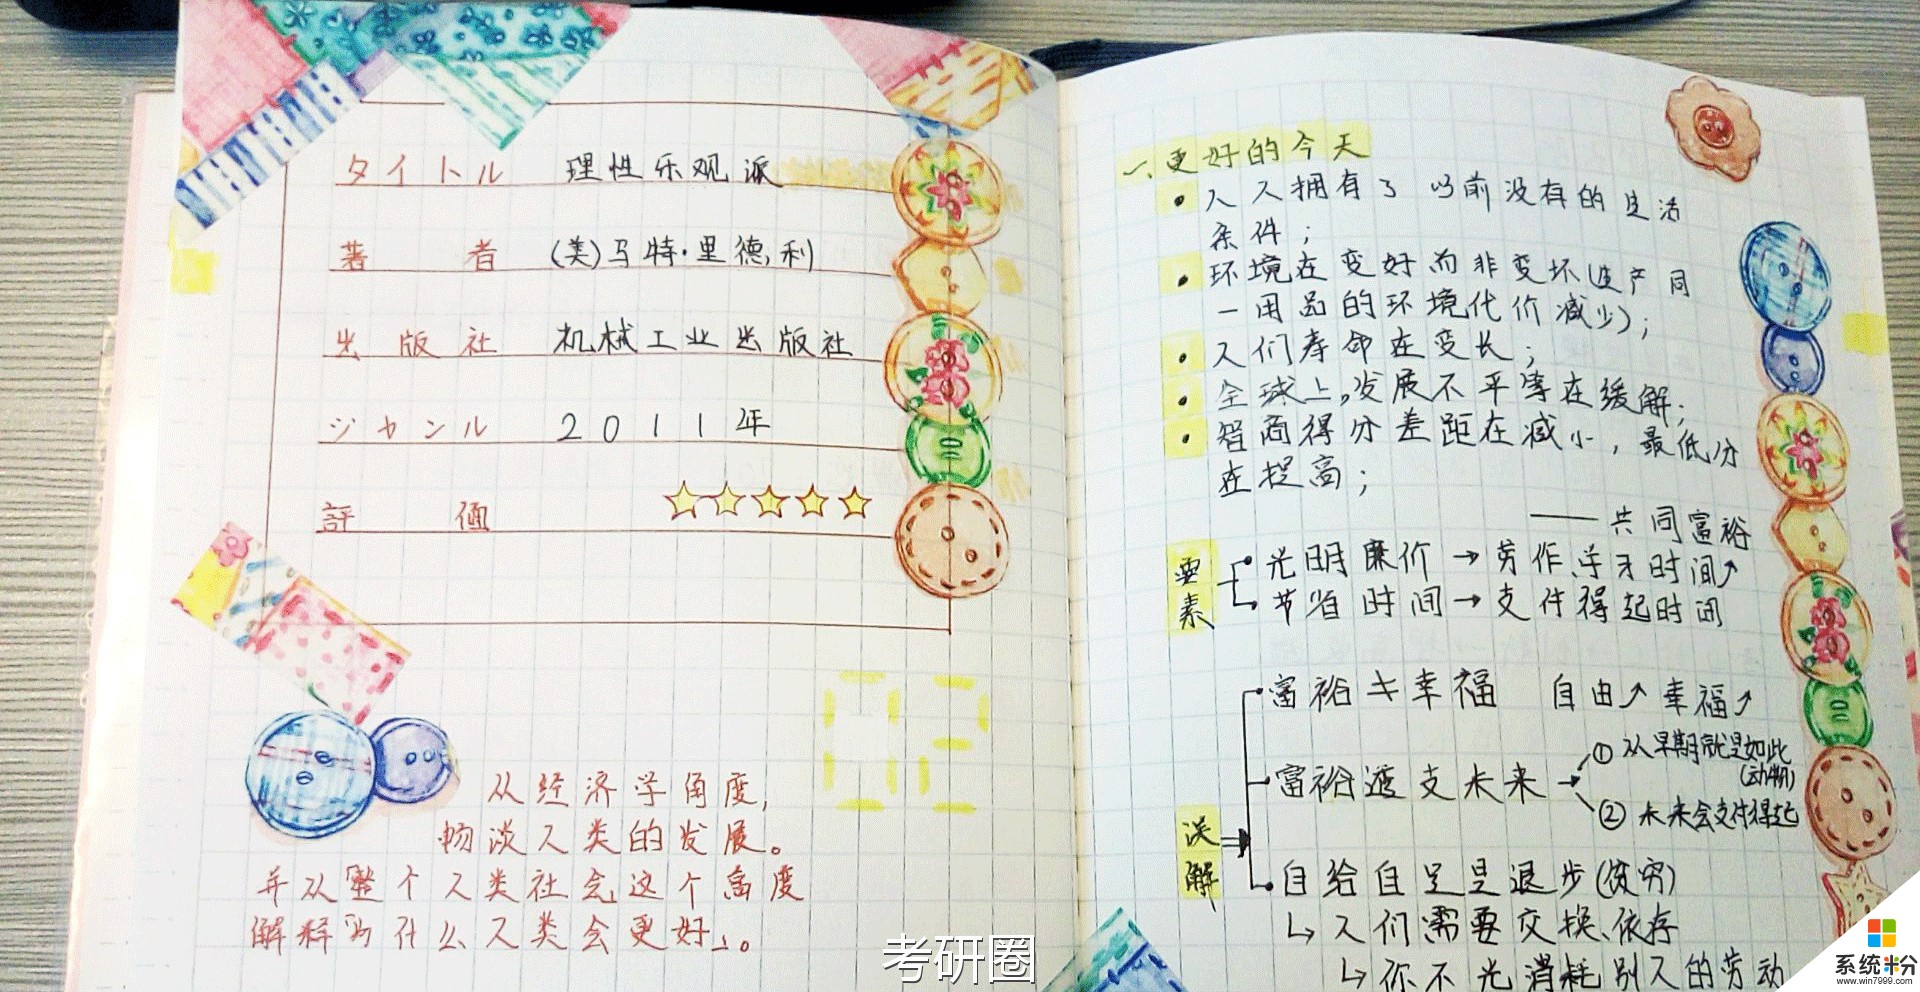 タイトル 理性乐观派
著者 (美)马特·里德利
出版社 机械工业出版社
ジャンル 2011年
評価 ☆☆☆☆☆
从经济学角度，
畅谈人类的发展。
并从整个人类社会这个角度
解释“为什么人类会更好”。
一、更好的今天
• 人人拥有了以前没有的生活
条件；
• 环境在变好而非变坏(生产同
一用品的环境代价减少)；
• 人们寿命在变长；
• 全球上，发展不平等在缓解；
• 智商得分差距在减小，最低分
在提高；
——共同富裕
要素
光明廉价→劳作、学习时间↗
节省时间→支付得起时间
误解
富裕≠幸福 自由↗ 幸福↗
富裕透支未来→
①从早期就是如此
(动物)
②未来会支付得起
自给自足是退步(贫穷)
↳人们需要交换、依存
↳你不光消耗别人的劳动
考研圈
系统粉
www.win7999.com